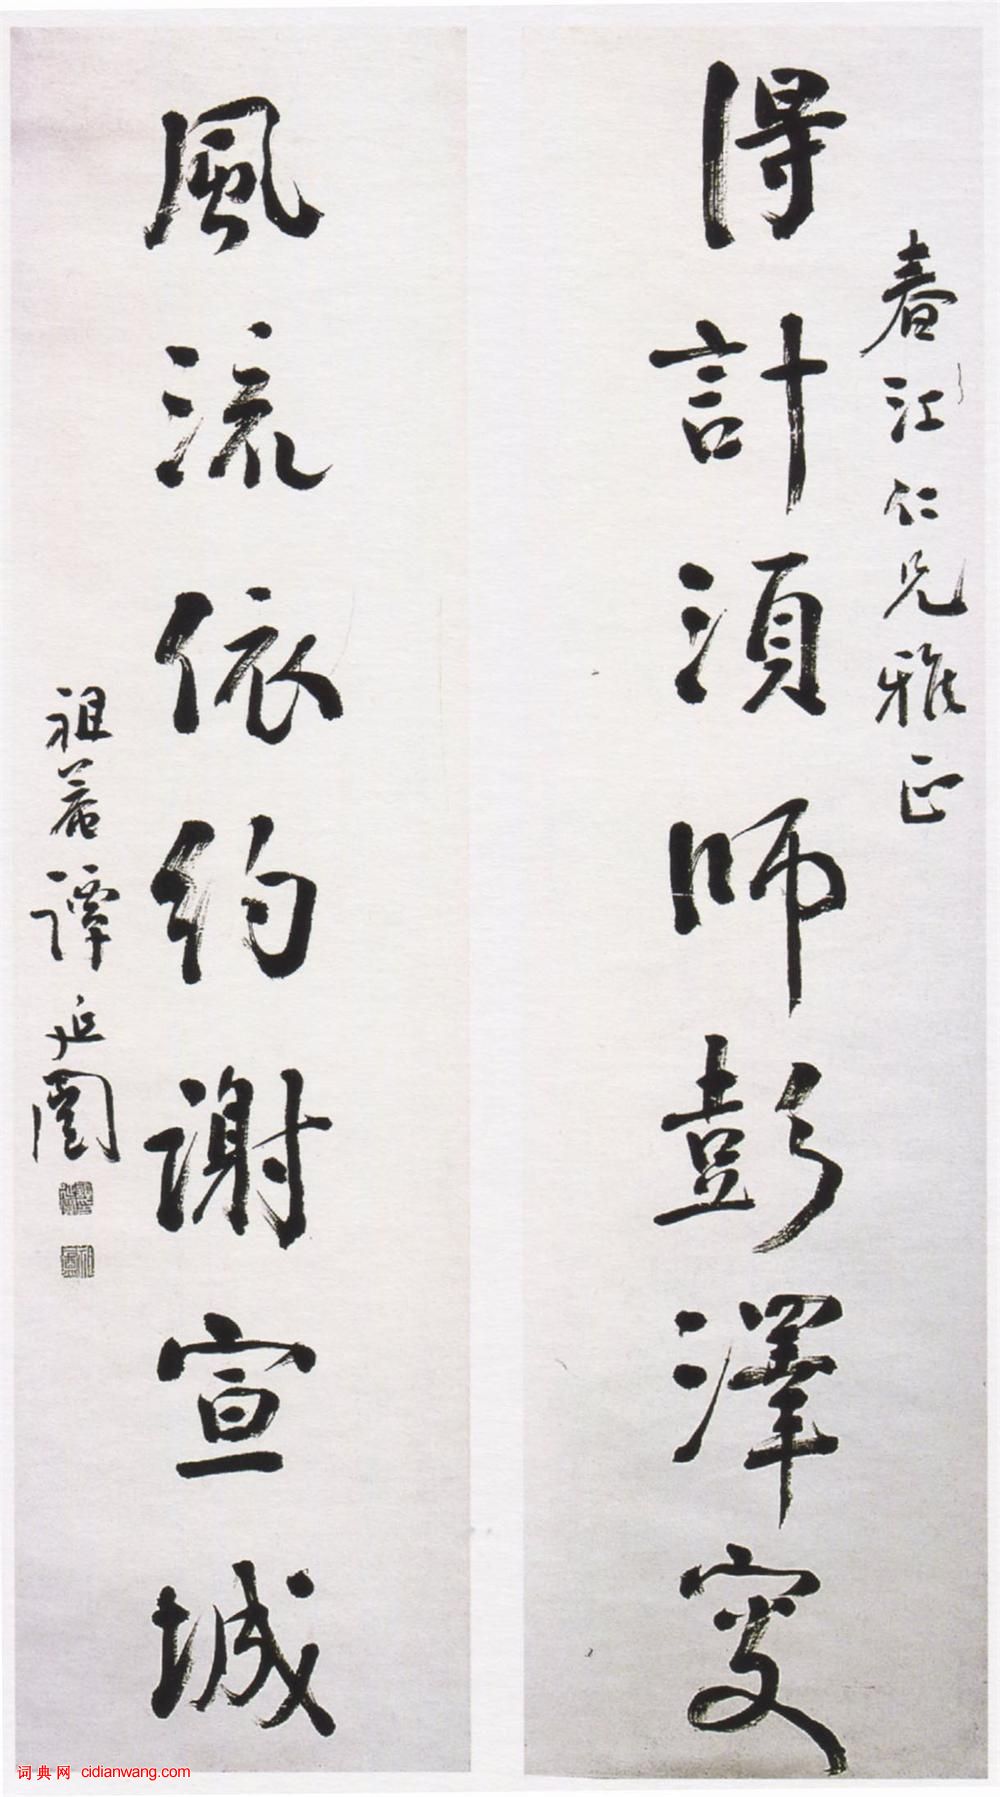 春江仁兄雅正
得計須師彭澤叟
風流依約謝宣城
祖菴譚延闓
词典网 cidianwang.com